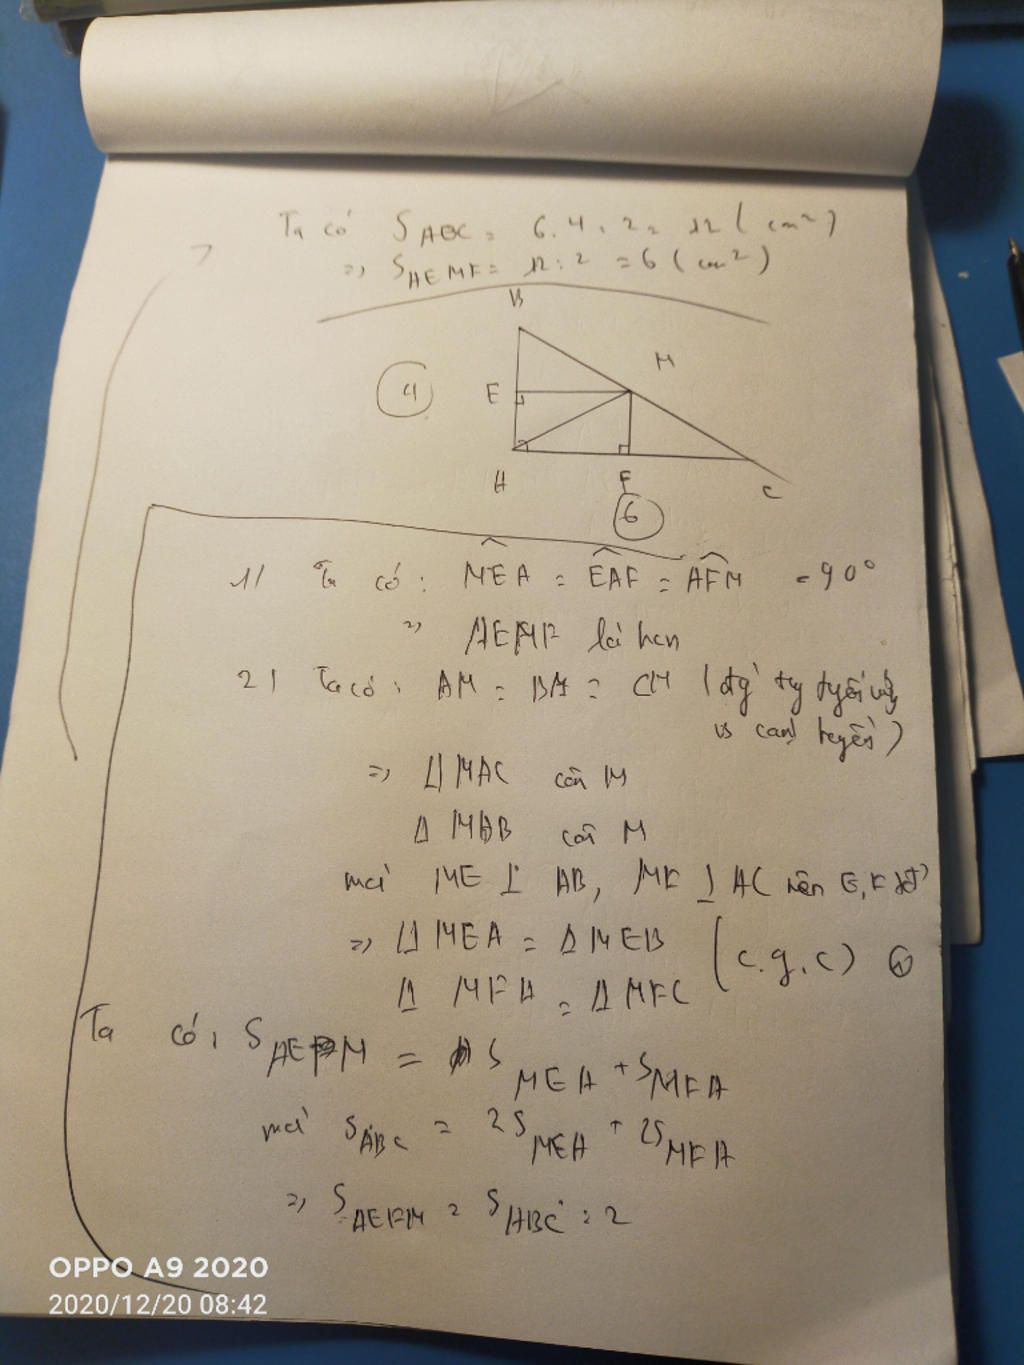 Ta có S ABC = 6.4:2= 12 (cm²)
=> S AEMF = 12:2 = 6 (cm²)
B
M
4
E
A
F
C
6
1/ Ta có: MEA = EAF = AFM = 90°
=> AEMF là hcn
2/ Ta có: AM = BM = CM (đg tg tuyến ứng
vs cạnh huyền)
=> Δ MAC cân M
Δ MAB cân M
mà ME ⊥ AB, MF ⊥ AC nên E, F
=> Δ MEA = Δ MEB (c.g.c)
Δ MFA = Δ MFC
Ta có: S AEFM = S MEA + S MFA
mà S ABC = 2S MEA + 2S MFA
=> S AEFM = S ABC : 2
OPPO A9 2020
2020/12/20 08:42